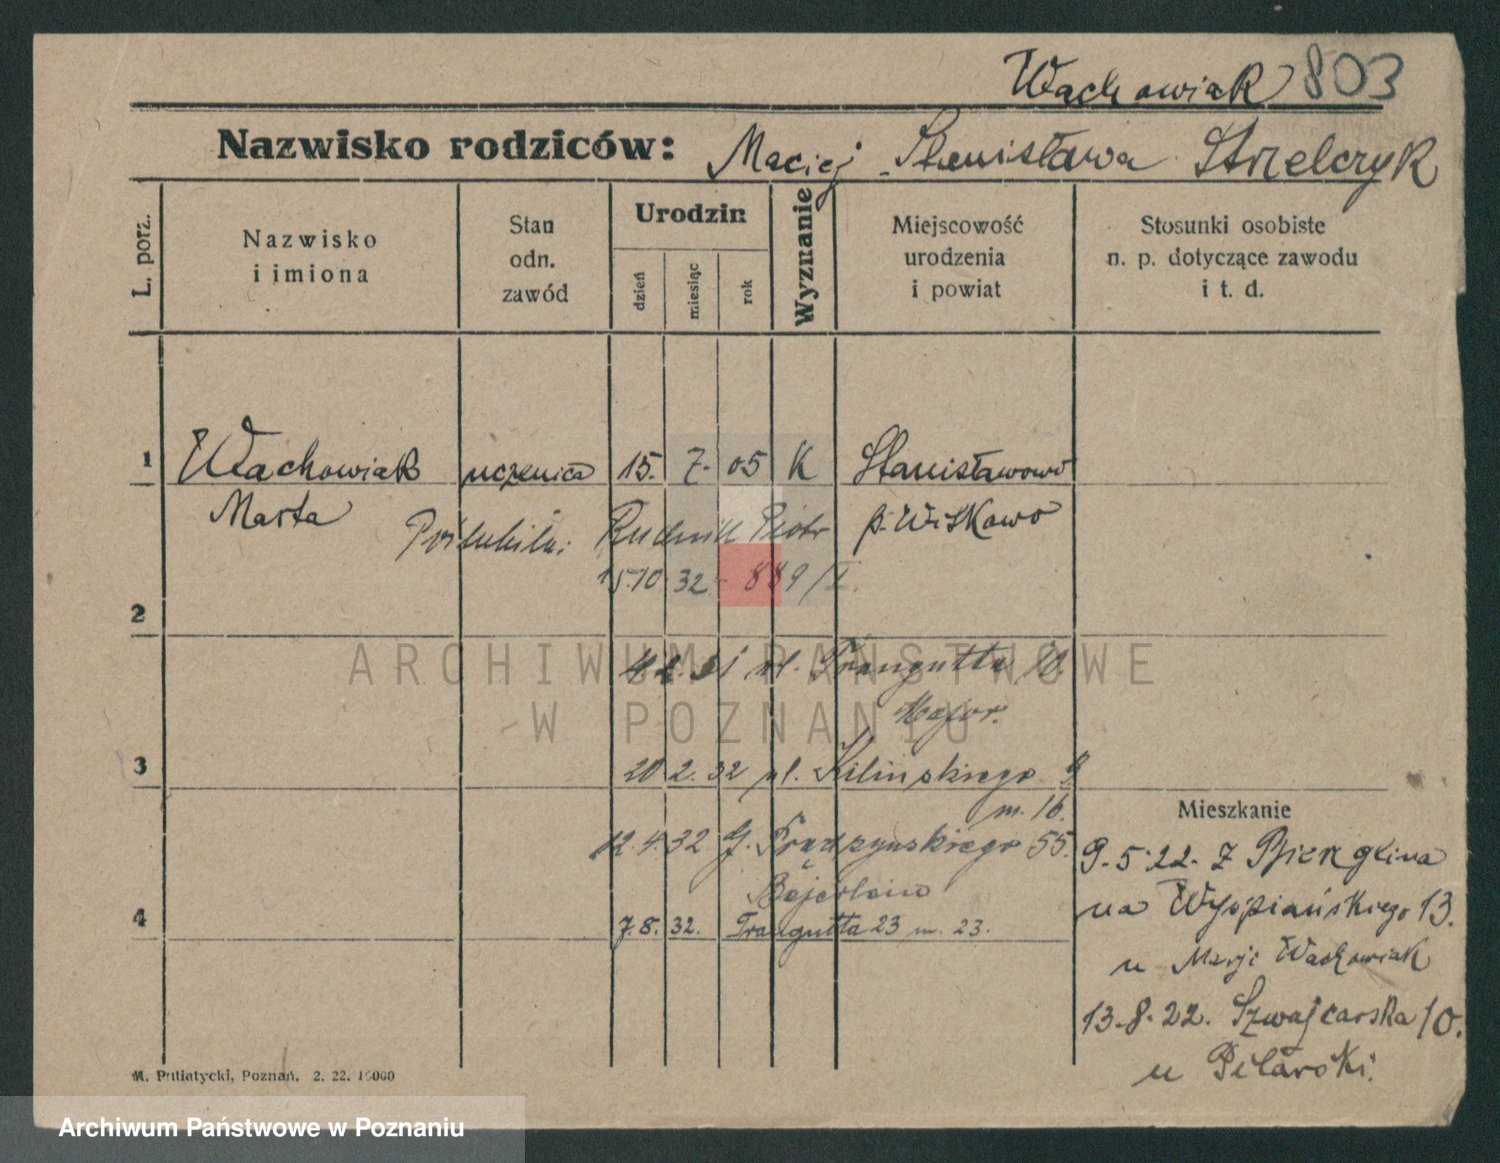 Wachowiak 803
Nazwisko rodziców: Maciej - Stanisława Strzelczyk
L. porz.
Nazwisko
i imiona
Stan
odn.
zawód
Urodzin
dzień
miesiąc
rok
Wyznanie
Miejscowość
urodzenia
i powiat
Stosunki osobiste
n. p. dotyczące zawodu
i t. d.
1 Wachowiak uczenica 15. 7. 05 K Stanisławowo
Marta p. Witkowo
Poślubiła: Rudnik Piotr
15.10.32 - 889/I.
2
ul. Traugutta
Major.
3 20 2. 32 ul. Kilińskiego 9
m. 16.
12. 4. 32 G. Prądzyńskiego 55.
4 7. 8. 32. Traugutta 23 m. 23.
Mieszkanie
9.5.22. z Bierzglina
na Wyspiańskiego 13.
u Marji Wachowiak
13.8.22. Szwajcarska 10.
u Pilarski.
M. Putiatycki, Poznań. 2. 22. 10000
ARCHIWUM PAŃSTWOWE
W POZNANIU
Archiwum Państwowe w Poznaniu